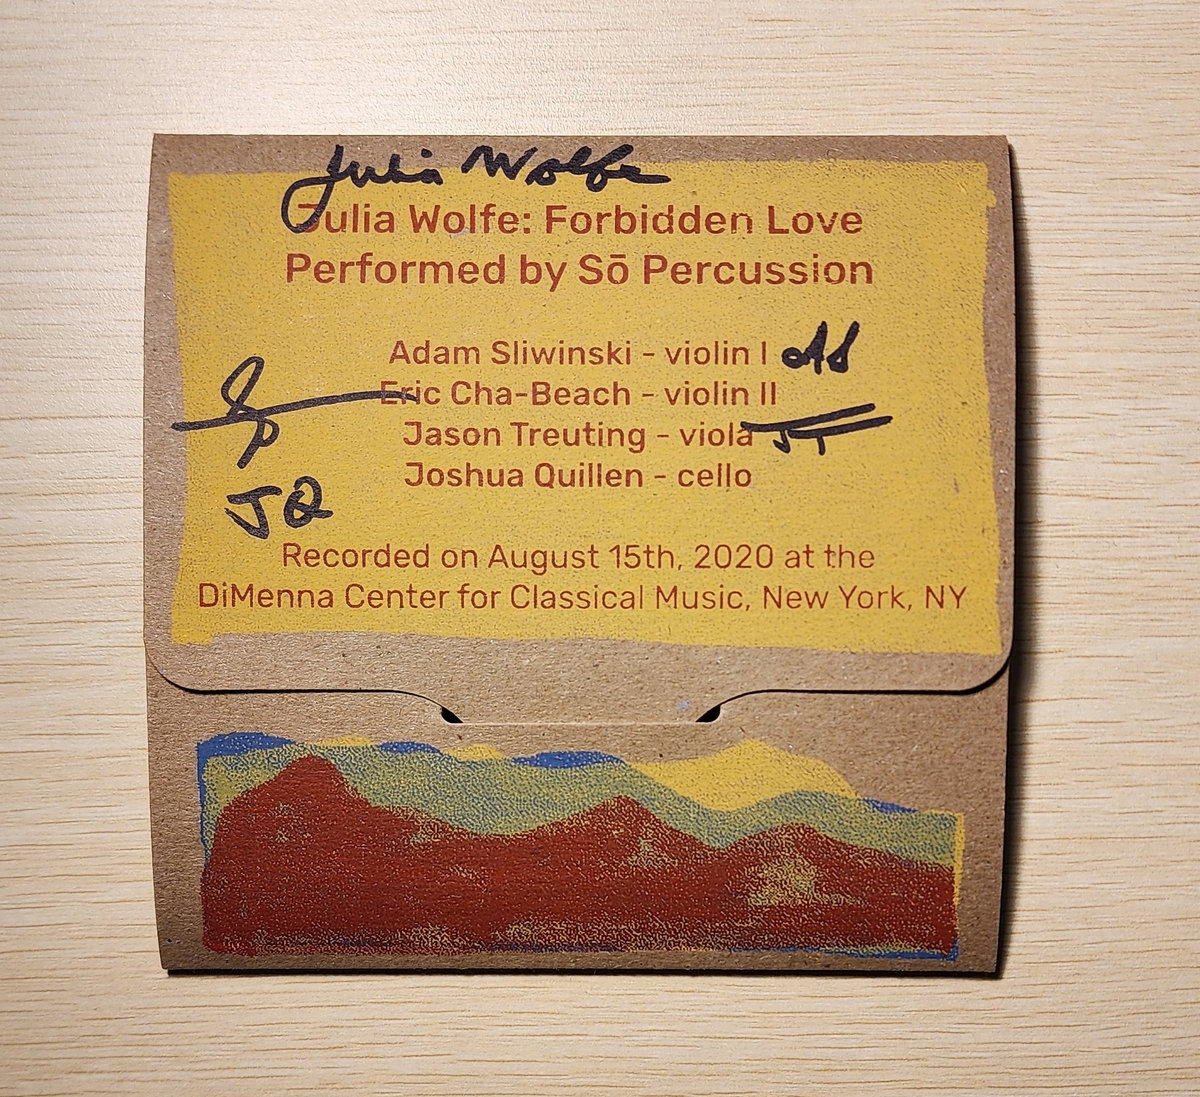 Julia Wolfe
Julia Wolfe: Forbidden Love
Performed by Sō Percussion
Adam Sliwinski - violin I AS
Eric Cha-Beach - violin II
Jason Treuting - viola JT
Joshua Quillen - cello
JQ
Recorded on August 15th, 2020 at the
DiMenna Center for Classical Music, New York, NY